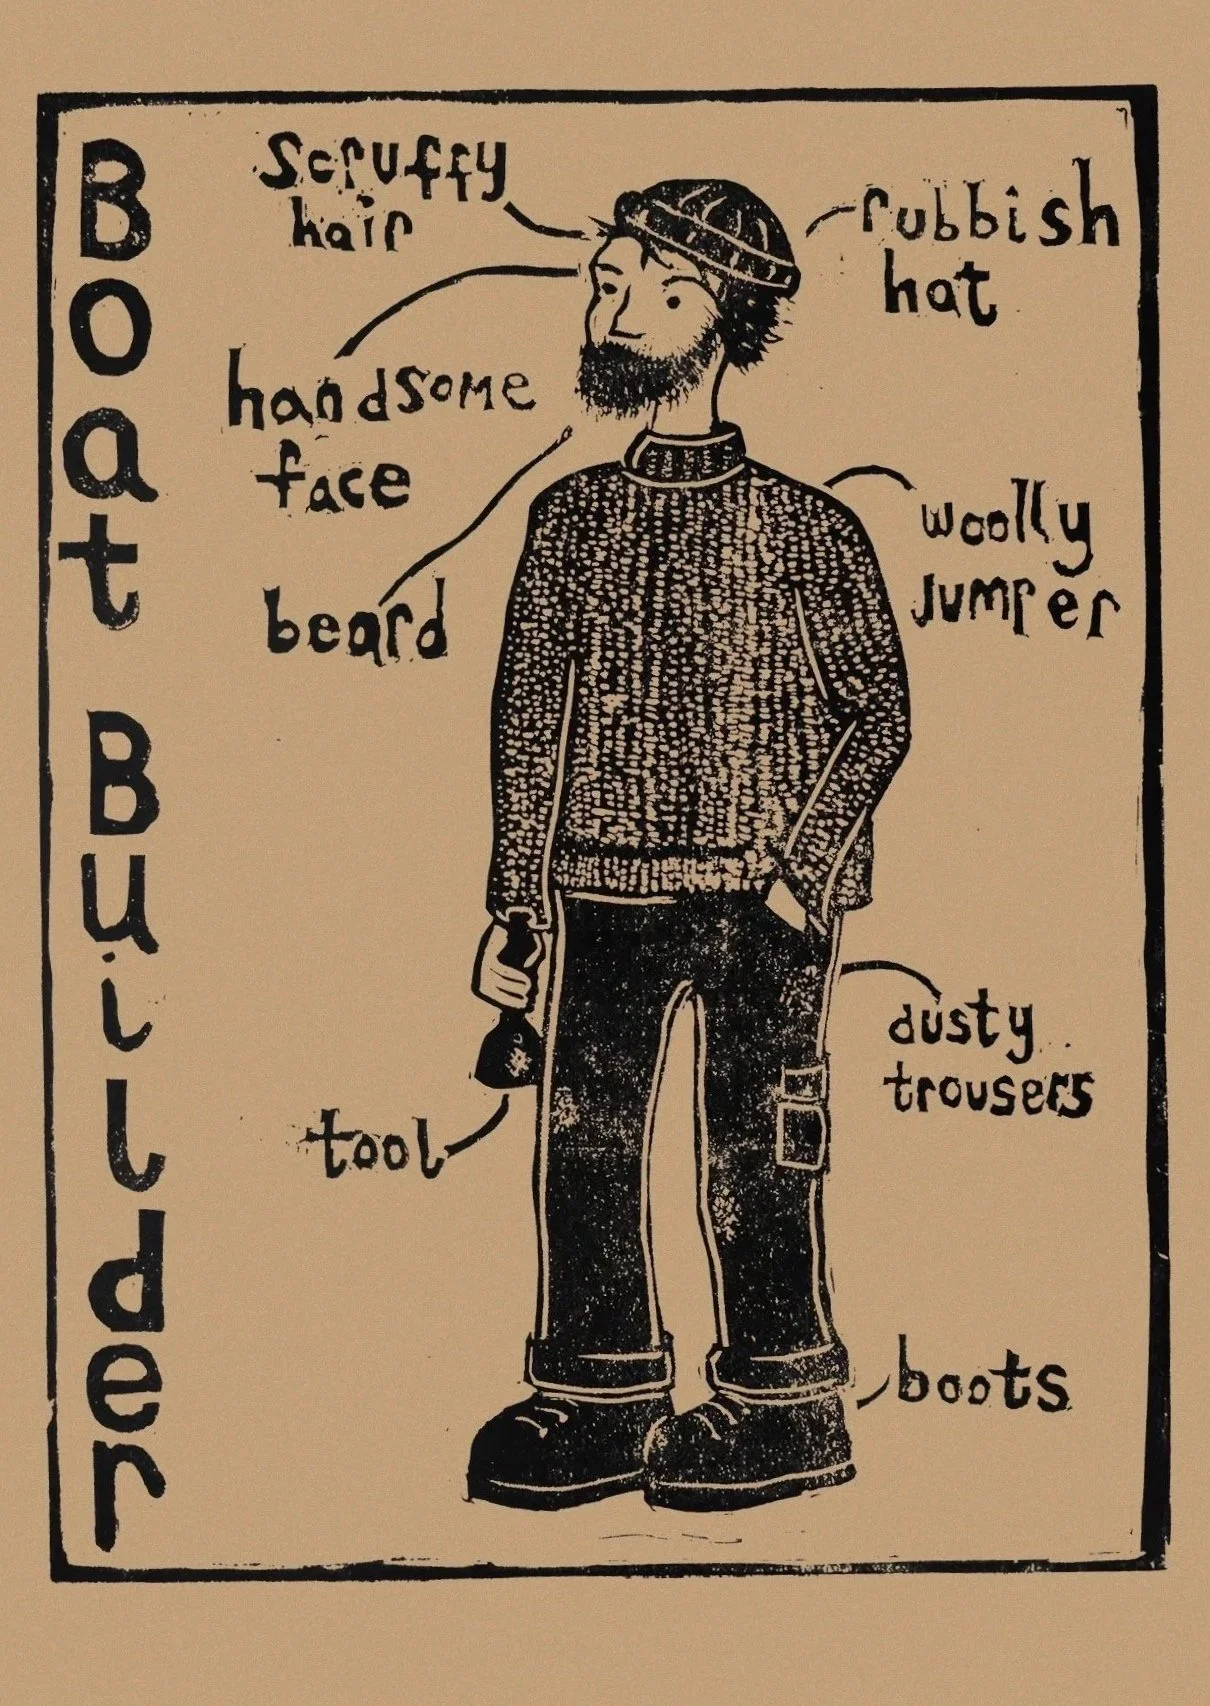 Boat Builder
Scruffy
hair
rubbish
hat
handsome
face
woolly
jumper
beard
dusty
trousers
tool
boots